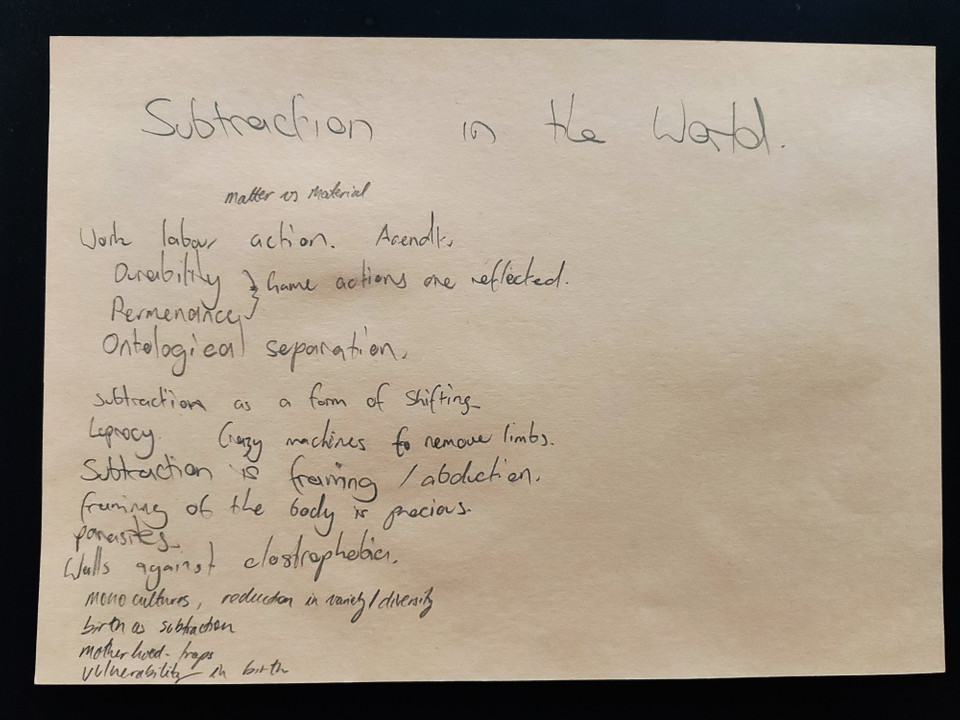 Subtraction in the World.
matter vs material
Work labour action. Arendt.
Durability
Permenance } same actions are reflected.
Ontological separation.
subtraction as a form of shifting
Leprocy. Crazy machines to remove limbs.
Subtraction is framing / abduction.
framing of the body is precious.
parasites
Walls against clostraphobia.
monocultures, reduction in variety/diversity
birth as subtraction
motherhood - traps
vulnerability in birth